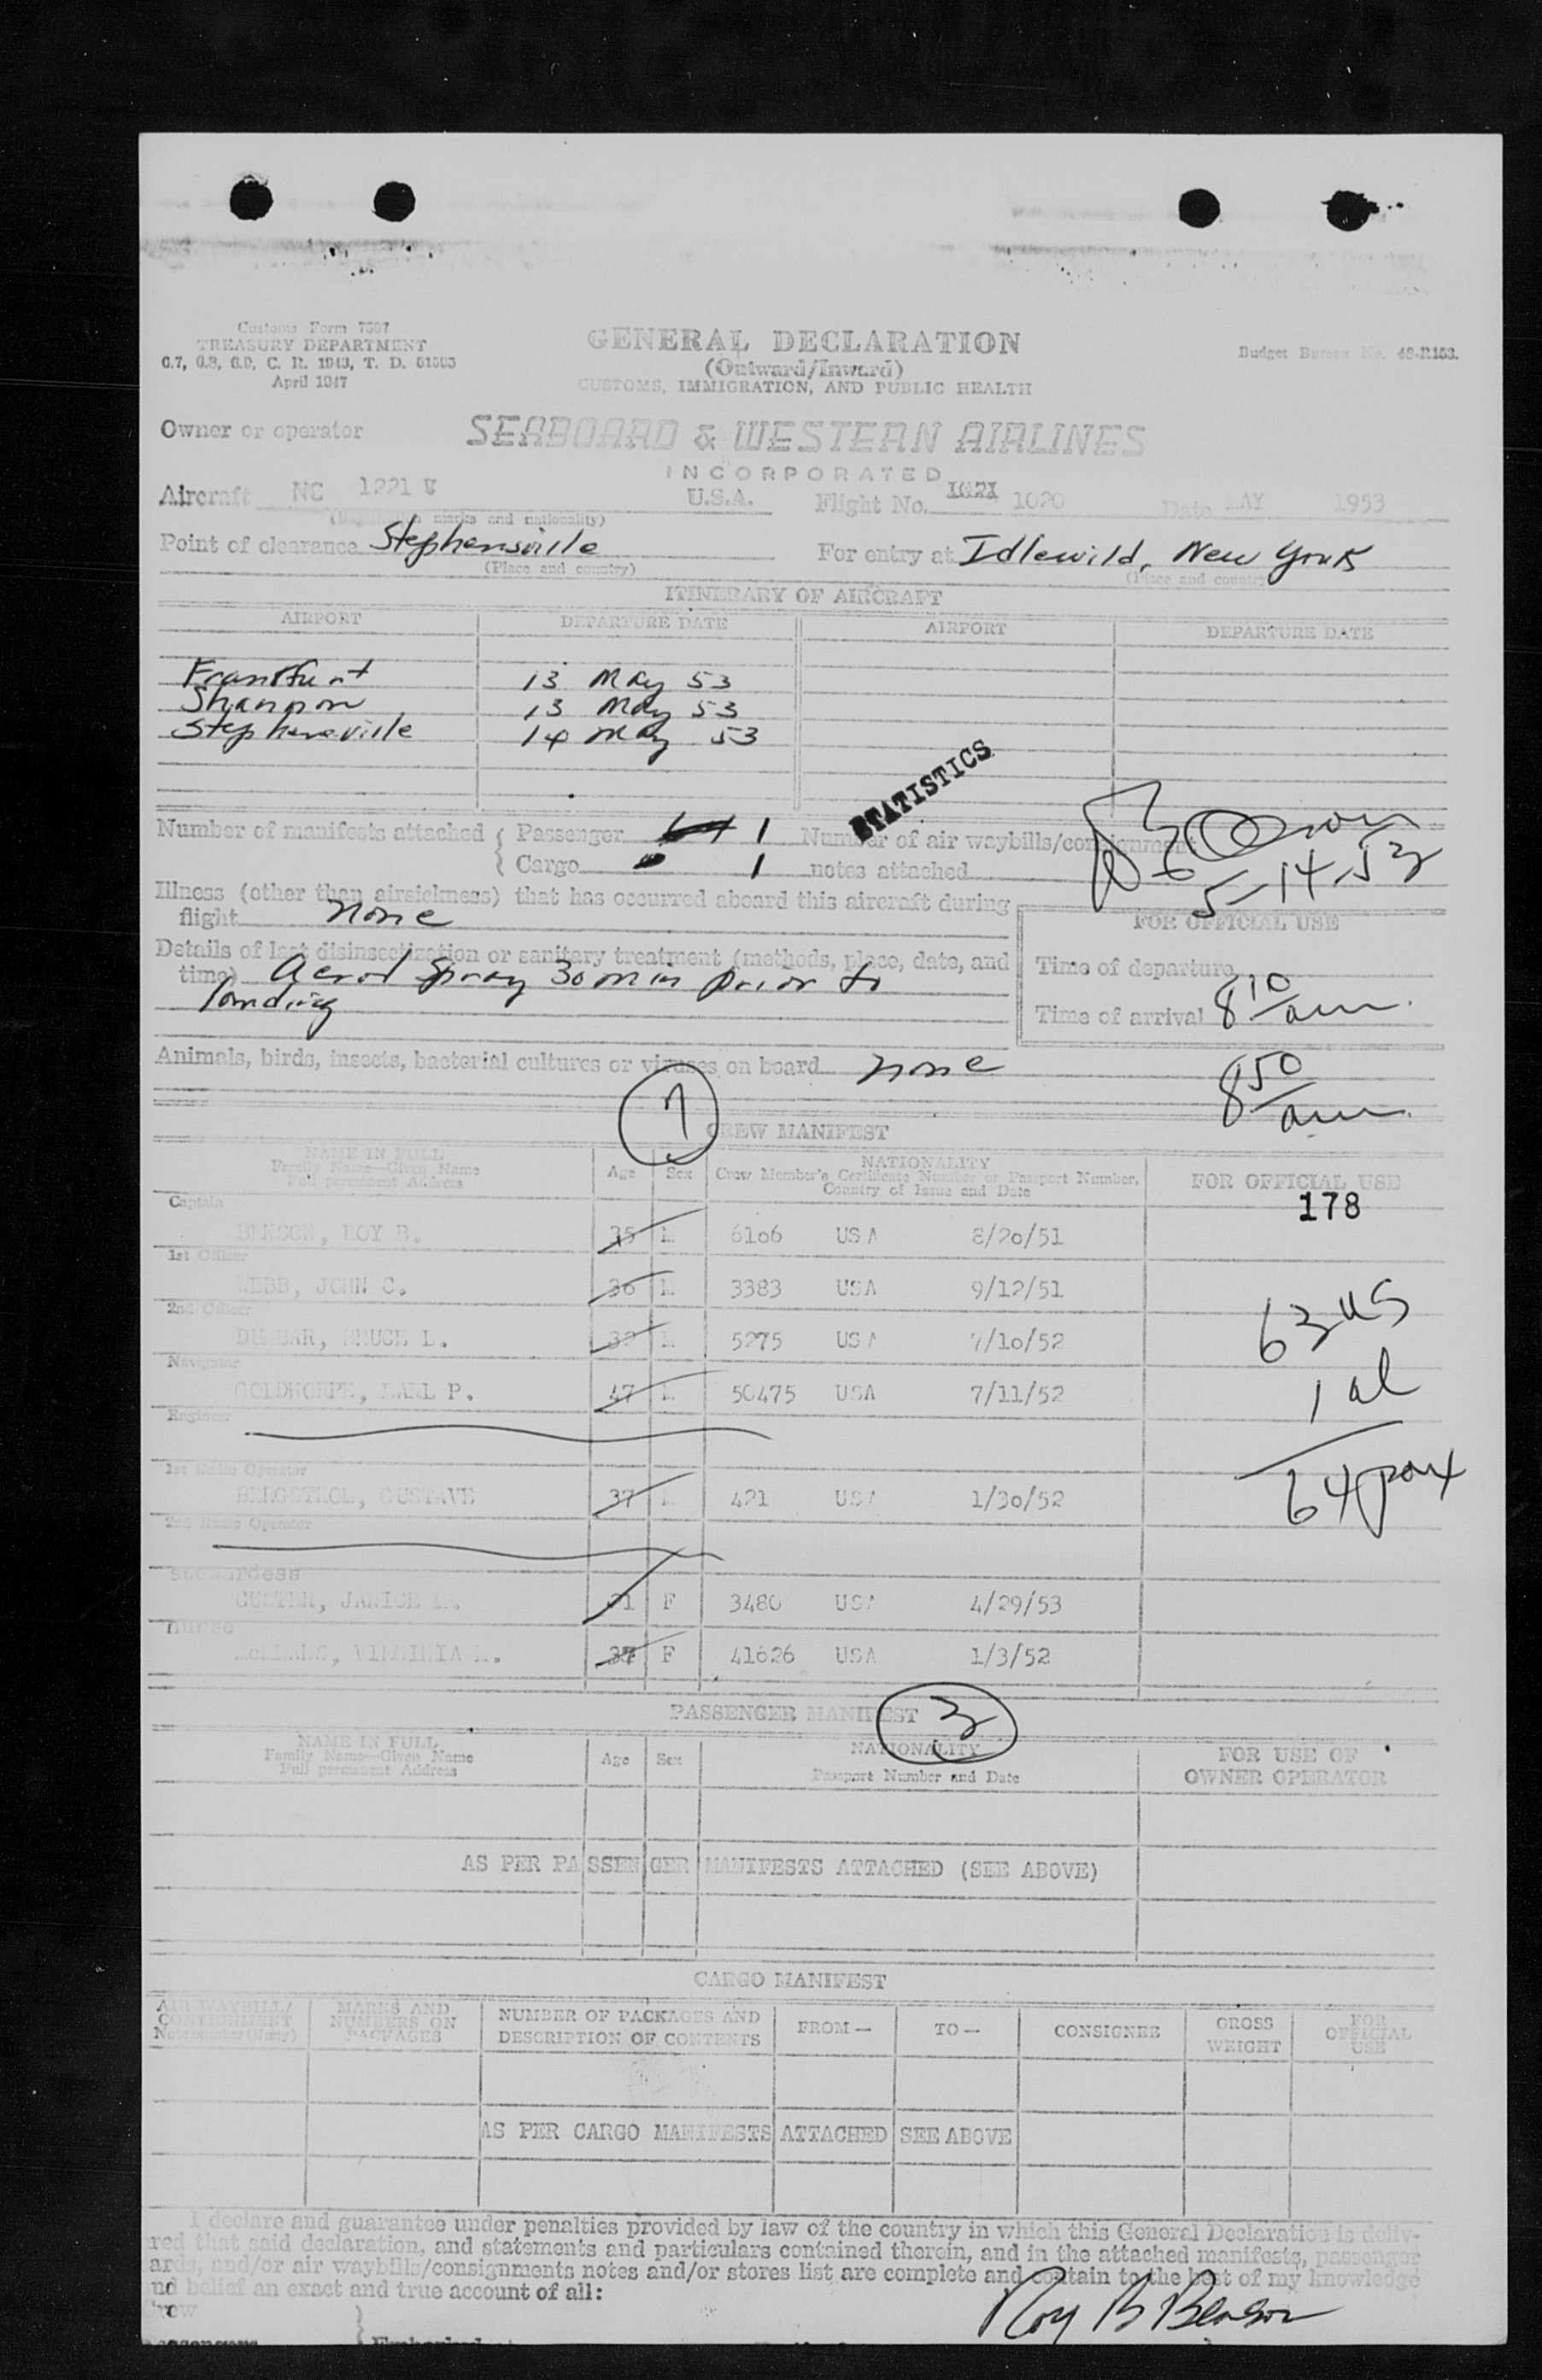 Customs Form 7507
TREASURY DEPARTMENT
6.7, 6.8, 6.9, C. R. 1943, T. D. 51505
April 1947
GENERAL DECLARATION
(Outward/Inward)
CUSTOMS, IMMIGRATION, AND PUBLIC HEALTH
Budget Bureau No. 48-R153.
Owner or operator SEABOARD & WESTERN AIRLINES
INCORPORATED
Aircraft NC 1221 V U.S.A. Flight No. 1021 1020 Date MAY 1953
(marks and nationality)
Point of clearance Stephensville For entry at Idlewild, New York
(Place and country) (Place and country)
ITINERARY OF AIRCRAFT
AIRPORT DEPARTURE DATE AIRPORT DEPARTURE DATE
Frankfurt 13 May 53
Shannon 13 May 53
Stephenville 14 May 53
STATISTICS
Number of manifests attached { Passenger 1 Number of air waybills/consignment
{ Cargo 1 notes attached
5-14-53
Illness (other than airsickness) that has occurred aboard this aircraft during
flight none
FOR OFFICIAL USE
Details of last disinsectization or sanitary treatment (methods, place, date, and
time) Aerosol Spray 30 min prior to
landing
Time of departure
Time of arrival 8 10 am
Animals, birds, insects, bacterial cultures or viruses on board none
8 50 am
7
CREW MANIFEST
NAME IN FULL
Family Name—Given Name
Full permanent Address
Age Sex
NATIONALITY
Crew Member's Certificate Number or Passport Number,
Country of Issue and Date
FOR OFFICIAL USE
178
Captain
BENSON, ROY B. 35 M 6106 USA 8/20/51
1st Officer
WEBB, JOHN C. 36 M 3383 USA 9/12/51
63 US
2nd Officer
DUNBAR, BRUCE L. M 5275 USA 7/10/52
Navigator
1 al
GOLDTHORPE, EARL P. 47 M 50475 USA 7/11/52
Engineer
64 pax
1st Radio Operator
BERGSTROM, GUSTAVE 37 M 421 USA 1/30/52
2nd Radio Operator
Stewardess
CUSTER, JANICE F 3480 USA 4/29/53
nurse
VIRGINIA F 41626 USA 1/3/52
PASSENGER MANIFEST 3
NAME IN FULL
Family Name—Given Name
Full permanent Address
Age Sex
NATIONALITY
Passport Number and Date
FOR USE OF
OWNER OPERATOR
AS PER PASSENGER MANIFESTS ATTACHED (SEE ABOVE)
CARGO MANIFEST
AIR WAYBILL/
CONSIGNMENT
Note number (if any)
MARKS AND
NUMBERS ON
PACKAGES
NUMBER OF PACKAGES AND
DESCRIPTION OF CONTENTS
FROM—
TO—
CONSIGNEE
GROSS
WEIGHT
FOR
OFFICIAL
USE
AS PER CARGO MANIFESTS ATTACHED SEE ABOVE
I declare and guarantee under penalties provided by law of the country in which this General Declaration is deliv-
red that said declaration, and statements and particulars contained therein, and in the attached manifests, passenger
ards, and/or air waybills/consignments notes and/or stores list are complete and contain to the best of my knowledge
nd belief an exact and true account of all:
Roy B Benson